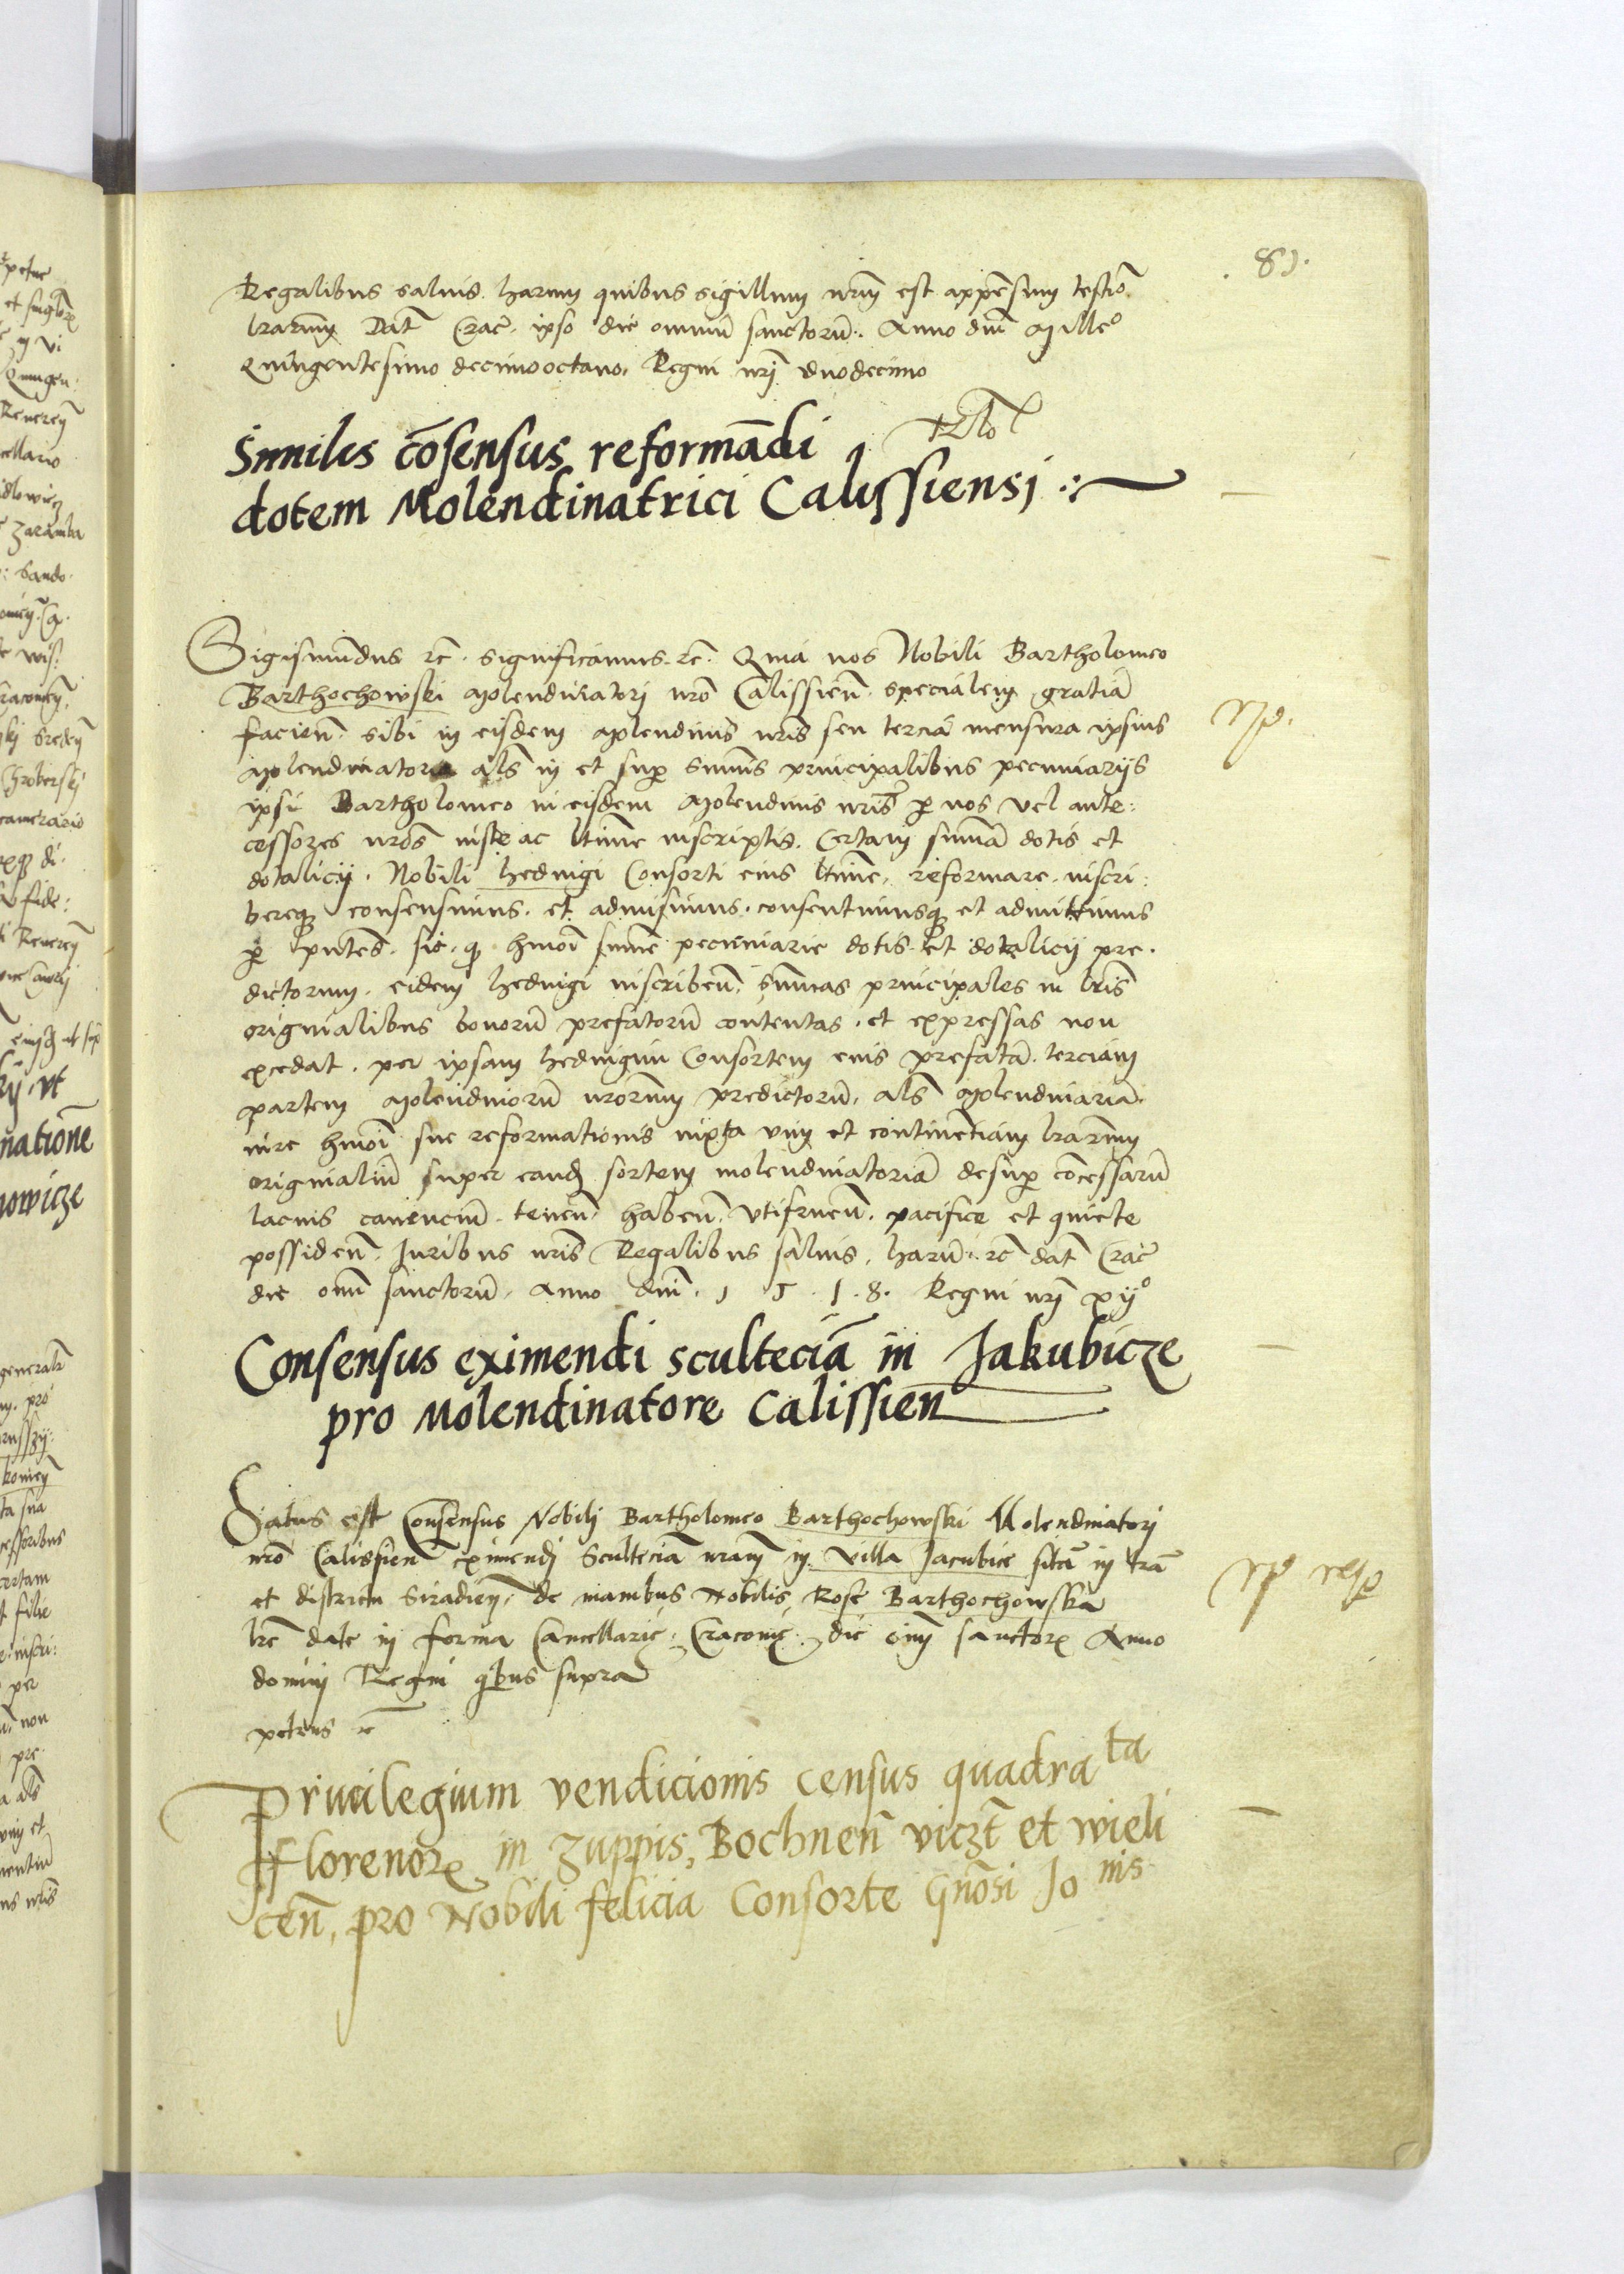 . 81.
Regalibus salvis. harum quibus sigillum nrm̃ est appẽsum testiõ
lrarum̃ Dat̃ Crac̃. ipso die omniũ sanctorũ. Anno dnĩ Mille°
Quingentesimo decimooctavo. Regni nrĩ duodecimo
Similis cõsensus reformãdi
dotem Molendinatrici Calissiensj
Sigismundus rc̃. significamus. rc̃. Quia nos Nobili Bartholomeo
Barthochowski Molendinatori nrõ Calissieñ. specialem gratiã
facieñ. sibi in eisdem Molendinis nrĩs seu terciã mensura ipsius
Molendinatoria als̃ in et sup̱ sum̃is principalibus pecuniarijs
ipsi Bartholomeo in eisdem Molendinis nrĩs p̱ nos vel ante:
cessores nrõs iuste ac ltĩme inscriptis. Certam sum̃ã dotis et
dotalicij. Nobili hedvigi Consorti eius ltĩme. reformare. inscri:
bereqʒ consensimus. et admisimus. consentimusqʒ et admittimus
p̱ pñtes. sic. qʒ hmõi sum̃e pecuniarie dotis. et dotalicij pre.
dictorum. eidem hedvigi inscribeñ. sum̃as principales in lrĩs
originalibus bonorũ prefatorũ contentas. et expressas non
excedat. per ipsam hedvigim Consortem eius prefatã. terciam
partem Molendinorũ nrõrum predictorũ. als̃ Molendinariã.
iure hmõi sue reformationis iuxta vim et continẽtiam lrarum̃
originaliũ super eand̃ sortem molendinatoriã desup̱ cõcessarũ
laeuis canenciũ. teneñ. habeñ. vtifrueñ. pacifice et quiete
possideñ. Iuribus nrĩs Regalibus salvis. harũ. rc̃ dat̃ Crac̃
die om̃ sanctorũ. Anno dnĩ. 1 5 . 1 . 8. Regni nrĩ xij°
Consensus eximendi scultecia͂ in Jakubicze
pro Molendinatore Calissien̄
Datus est Consensus Nobilj Bartholomeo Barthochowski Molendinatorj
nrõ Calissieñ eximendj Scultecia͂ nram̃ in villa Jacubice sitã in trã
et districtu Siradieñ. de manibus Nobilis Rose Barthochowska
lrẽ date in forma Cancellarie. Cracovie. die om̃ sanctorꝝ Anno
dominj Regni qbus supra
petens rc̃
Privilegium vendicionis census quadrata
Florenorꝝ in zuppis, Bochneñ viczt̃ et wieli
ceñ, pro Nobili felicia Consorte Gnõsi Jonis